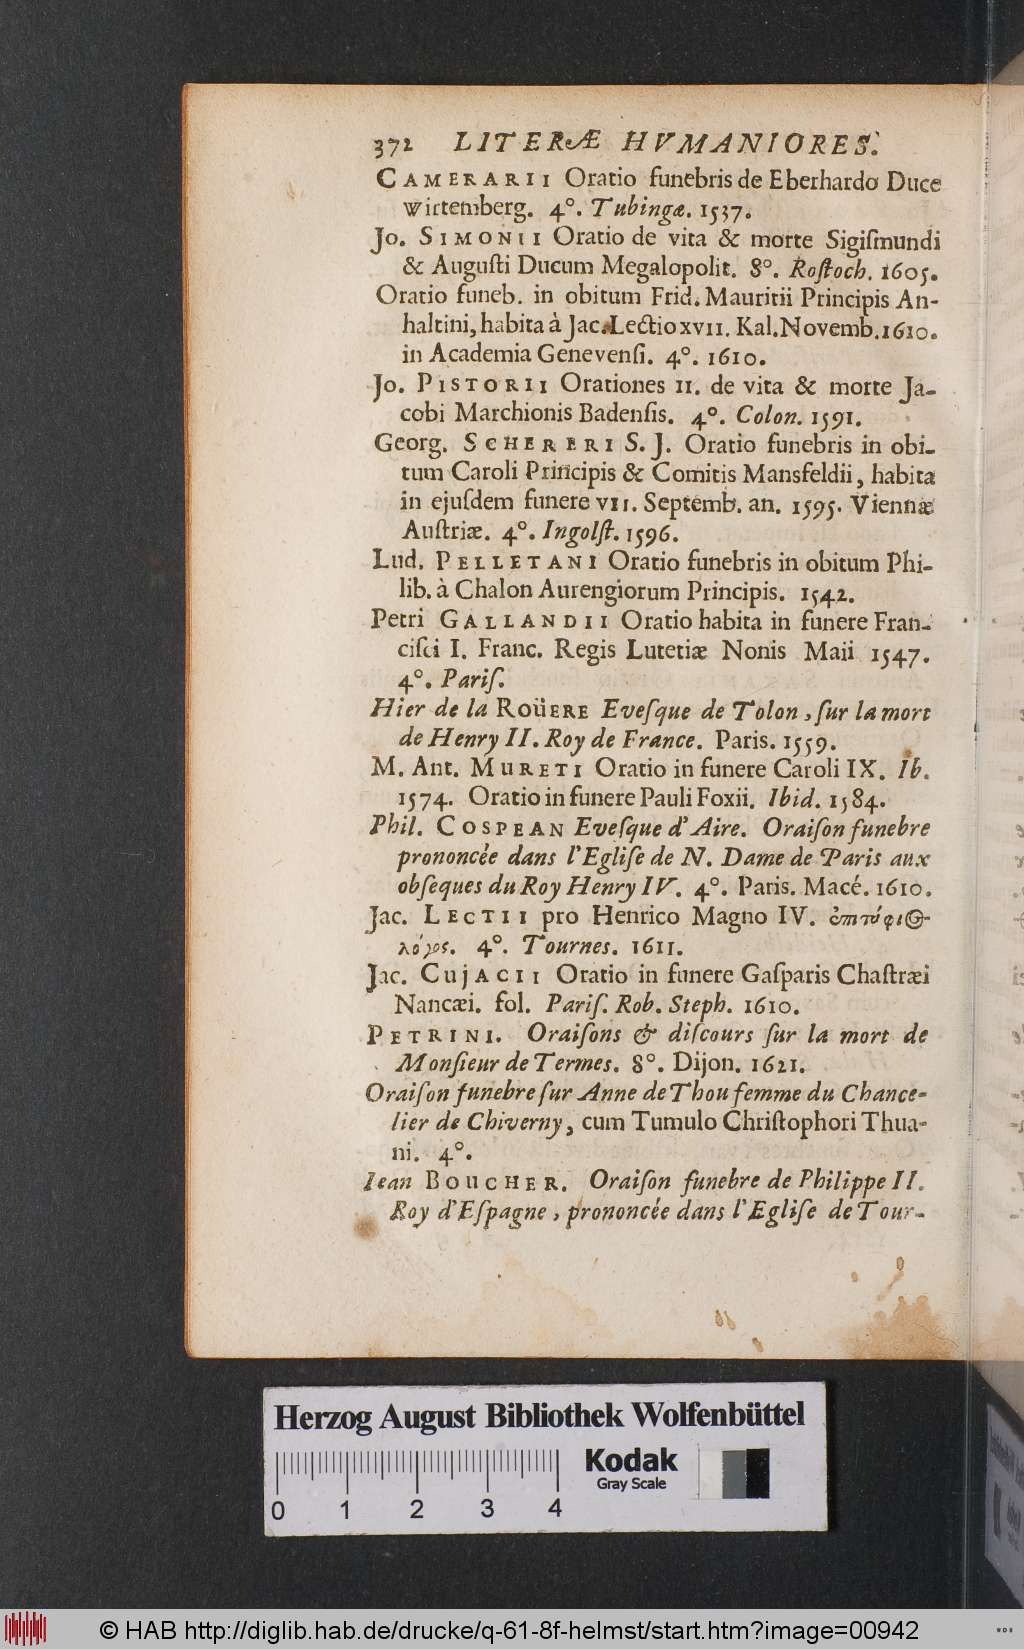 372 LITERÆ HVMANIORES.
CAMERARII Oratio funebris de Eberhardo Duce
wirtemberg. 4°. Tubingæ. 1537.
Jo. SIMONII Oratio de vita & morte Sigiſmundi
& Auguſti Ducum Megalopolit. 8°. Roſtoch. 1605.
Oratio funeb. in obitum Frid. Mauritii Principis An-
haltini, habita à Jac. Lectio XVII. Kal. Novemb. 1610.
in Academia Genevenſi. 4°. 1610.
Jo. PISTORII Orationes II. de vita & morte Ja-
cobi Marchionis Badenſis. 4°. Colon. 1591.
Georg. SCHERERI S. J. Oratio funebris in obi-
tum Caroli Principis & Comitis Mansfeldii, habita
in ejuſdem funere VII. Septemb. an. 1595. Viennæ
Auſtriæ. 4°. Ingolſt. 1596.
Lud. PELLETANI Oratio funebris in obitum Phi-
lib. à Chalon Aurengiorum Principis. 1542.
Petri GALLANDII Oratio habita in funere Fran-
ciſci I. Franc. Regis Lutetiæ Nonis Maii 1547.
4°. Pariſ.
Hier de la ROÜERE Eveſque de Tolon, ſur la mort
de Henry II. Roy de France. Paris. 1559.
M. Ant. MURETI Oratio in funere Caroli IX. Ib.
1574. Oratio in funere Pauli Foxii. Ibid. 1584.
Phil. COSPEAN Eveſque d'Aire. Oraiſon funebre
prononcée dans l'Egliſe de N. Dame de Paris aux
obſeques du Roy Henry IV. 4°. Paris. Macé. 1610.
Jac. LECTII pro Henrico Magno IV. ἐπιτάφιος
λόγος. 4°. Tournes. 1611.
Jac. CUJACII Oratio in funere Gaſparis Chaſtræi
Nancæi. fol. Pariſ. Rob. Steph. 1610.
PETRINI. Oraiſons & diſcours ſur la mort de
Monſieur de Termes. 8°. Dijon. 1621.
Oraiſon funebre ſur Anne de Thou femme du Chance-
lier de Chiverny, cum Tumulo Chriſtophori Thua-
ni. 4°.
Iean BOUCHER. Oraiſon funebre de Philippe II.
Roy d'Eſpagne, prononcée dans l'Egliſe de Tour-
Herzog August Bibliothek Wolfenbüttel
Kodak
Gray Scale
0 1 2 3 4
© HAB http://diglib.hab.de/drucke/q-61-8f-helmst/start.htm?image=00942